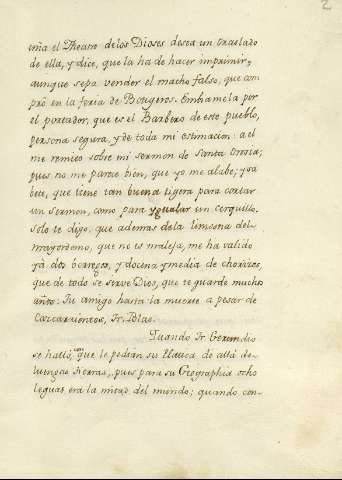 2
uña el Theatro de los Dioses desea un traslado
de ella, y dice, que la ha de hacer imprimir,
aunque sepa vender el macho falso, que com
prò en la feria de Bougeros. Embiamela por
el portador, que es el Barbero de este pueblo,
persona segura, y de toda mi estimacion: a el
me remito sobre mi sermon de Santa Orosia;
pues no me parece bien, que yo me alabe; y sa
bete, que tiene tan buena tigera para cortar
un sermon, como para ygualar un cerquillo.
Solo te digo, que ademas de la limosna del
mayordomo, que no es maleja, me ha valido
yà dos borregos, y docena y media de chorizos,
que de todo se sirve Dios, que te guarde muchos
años. Tu amigo hasta la muerte a pesar de
Carcarrientos, Fr. Blas.
Quando Fr. Gerundio
se hallò, con que le pedian su Platica de allà de
luengas tierras, pues para su Geographia ocho
leguas era la mitad del mundo; quando con-